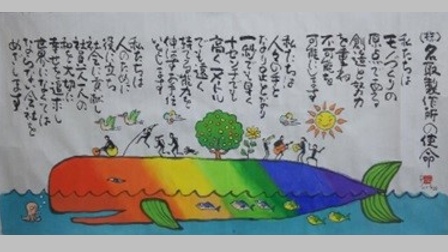 ㈱名取製作所の使命
私たちは
モノづくりの
原点である
創造と努力
を重ね
不可能を
可能にします
私たちは
人々の手と
なり足となり
一秒でも早く
十センチでも
高く一メートル
でも遠く
持てる能力を
伸ばすお手伝
いをします
私たちは
人のために
役に立ち
社会に貢献し
社員一人一人の
和を大切に
幸せを追求し
世界になくては
ならない会社を
めざします